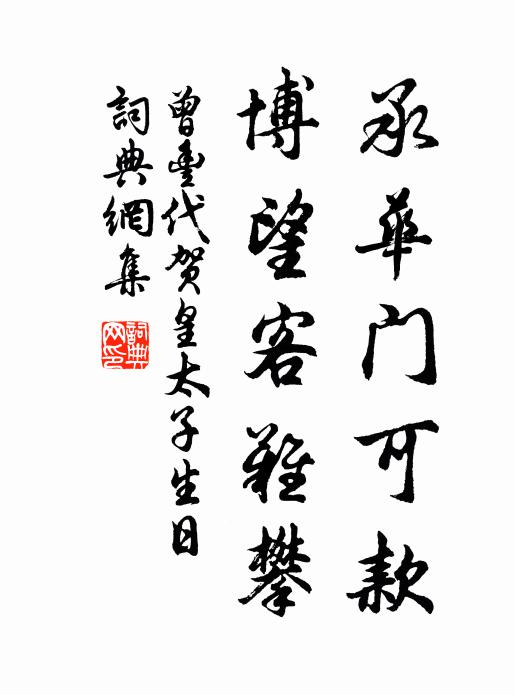 承華門可款
博望客難攀
曾豐代賀皇太子生日
詞典網集
詞典网印